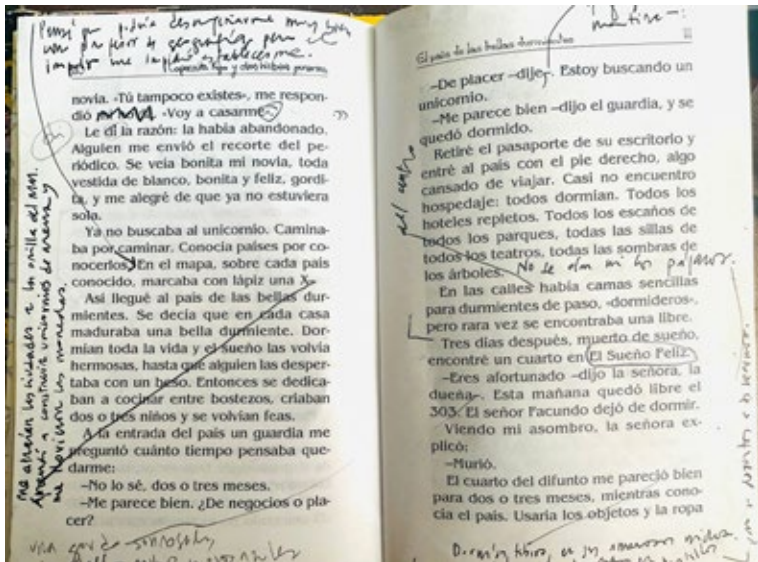 Pensé que podría desempeñarme muy bien
como profesor de geografía pero el
me impidió establecerme.
Caperucita Roja y otras historias perversas
novia. «Tú tampoco existes», me respon-
dió «Voy a casarme.»
Le di la razón: la había abandonado.
Alguien me envió el recorte del pe-
riódico. Se veía bonita mi novia, toda
vestida de blanco, bonita y feliz, gordi-
ta, y me alegré de que ya no estuviera
sola.
Ya no buscaba al unicornio. Camina-
ba por caminar. Conocía países por co-
nocerlos. En el mapa, sobre cada país
conocido, marcaba con lápiz una X.
Así llegué al país de las bellas dur-
mientes. Se decía que en cada casa
maduraba una bella durmiente. Dor-
mían toda la vida y el sueño las volvía
hermosas, hasta que alguien las desper-
taba con un beso. Entonces se dedica-
ban a cocinar entre bostezos, criaban
dos o tres niños y se volvían feas.
A la entrada del país un guardia me
preguntó cuánto tiempo pensaba que-
darme:
–No lo sé, dos o tres meses.
–Me parece bien. ¿De negocios o pla-
cer?
Me atraían las ciudades a la orilla del mar.
Aprendí a construir unicornios de arena y
me llovían las monedas.
El país de las bellas durmientes
–De placer –dije–. Estoy buscando un
unicornio.
–Me parece bien –dijo el guardia, y se
quedó dormido.
Retiré el pasaporte de su escritorio y
entré al país con el pie derecho, algo
cansado de viajar. Casi no encuentro
hospedaje: todos dormían. Todos los
hoteles repletos. Todos los escaños de
todos los parques, todas las sillas de
todos los teatros, todas las sombras de
los árboles. No se oían ni los pájaros.
En las calles había camas sencillas
para durmientes de paso, «dormideros»,
pero rara vez se encontraba una libre.
Tres días después, muerto de sueño,
encontré un cuarto en El Sueño Feliz.
–Eres afortunado –dijo la señora, la
dueña–. Esta mañana quedó libre el
303. El señor Facundo dejó de dormir.
Viendo mi asombro, la señora ex-
plicó:
–Murió.
El cuarto del difunto me pareció bien
para dos o tres meses, mientras cono-
cía el país. Usaría los objetos y la ropa
del centro